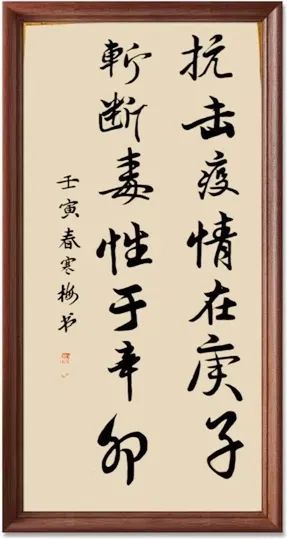 抗击疫情在庚子
斩断毒性于辛卯
壬寅春寒梅书